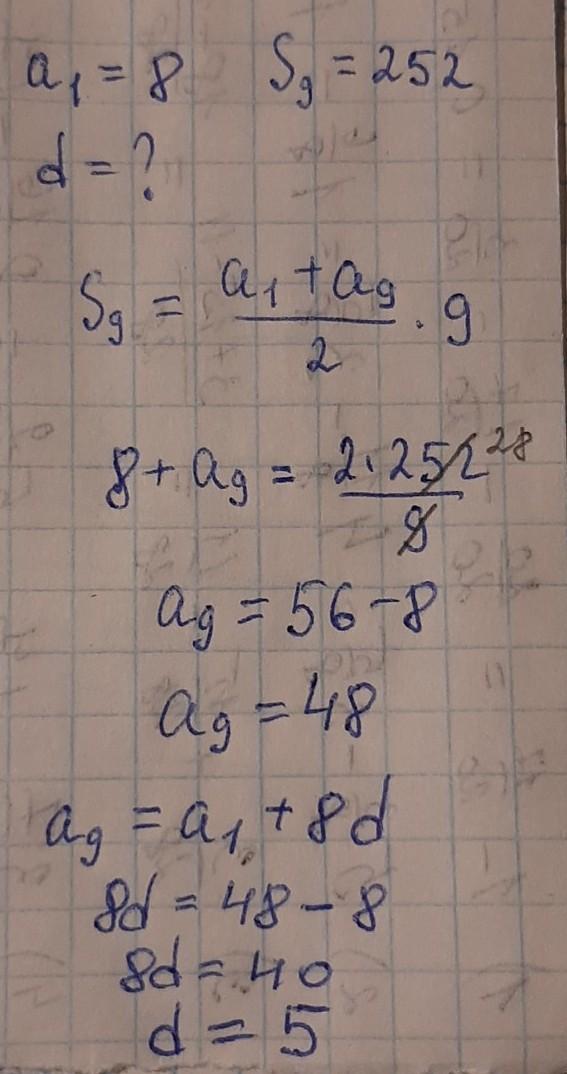 a₁ = 8 S₉ = 252
d = ?
S₉ = (a₁ + a₉)/2 · 9
8 + a₉ = (2 · 252)/9 28
a₉ = 56 - 8
a₉ = 48
a₉ = a₁ + 8d
8d = 48 - 8
8d = 40
d = 5